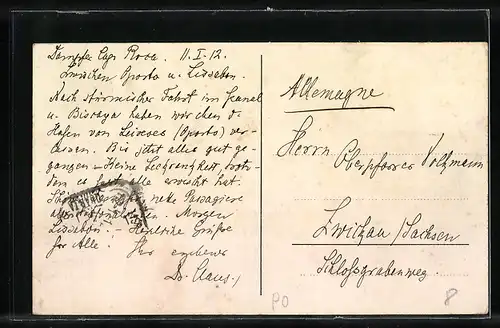 Dampfer Cap Roca. 11.I.12.
Zwischen Oporto u. Lissabon.
Nach stürmischer Fahrt im Kanal
u. Biscaya haben wir eben d.
Hafen von Leixoes (Oporto) ver-
lassen. Bis jetzt alles gut ge-
gangen – Keine Seekrankheit, trotz-
dem es fast alle erwischt hat.
nette Passagiere
Morgen
Lissabon. – Herzliche Grüße
for Alle. Ihr ergebener
Dr. Claus.
Allemagne
Herrn Oberpfarrer Voltzmann
Zwickau/Sachsen
Schlossgrabenweg.
PO
8